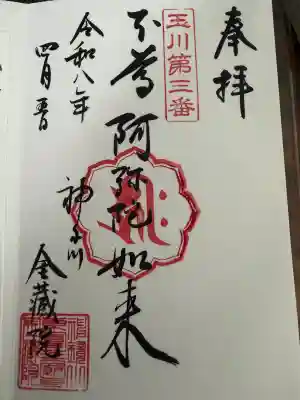 奉拝
玉川第三番
本尊阿弥陀如来
令和八年
四月吉日
神奈川
金藏院